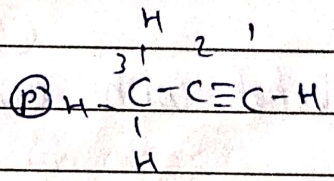 H
3 2 1
(P) H-C-C≡C-H
H